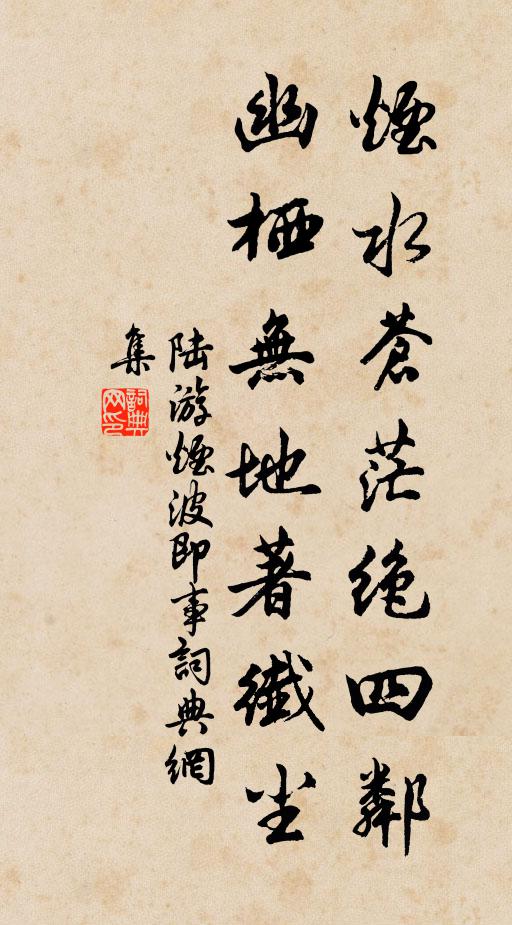 煙水蒼茫绝四鄰
幽栖無地著纖尘
陆游煙波即事詞典網
集
詞典
网印